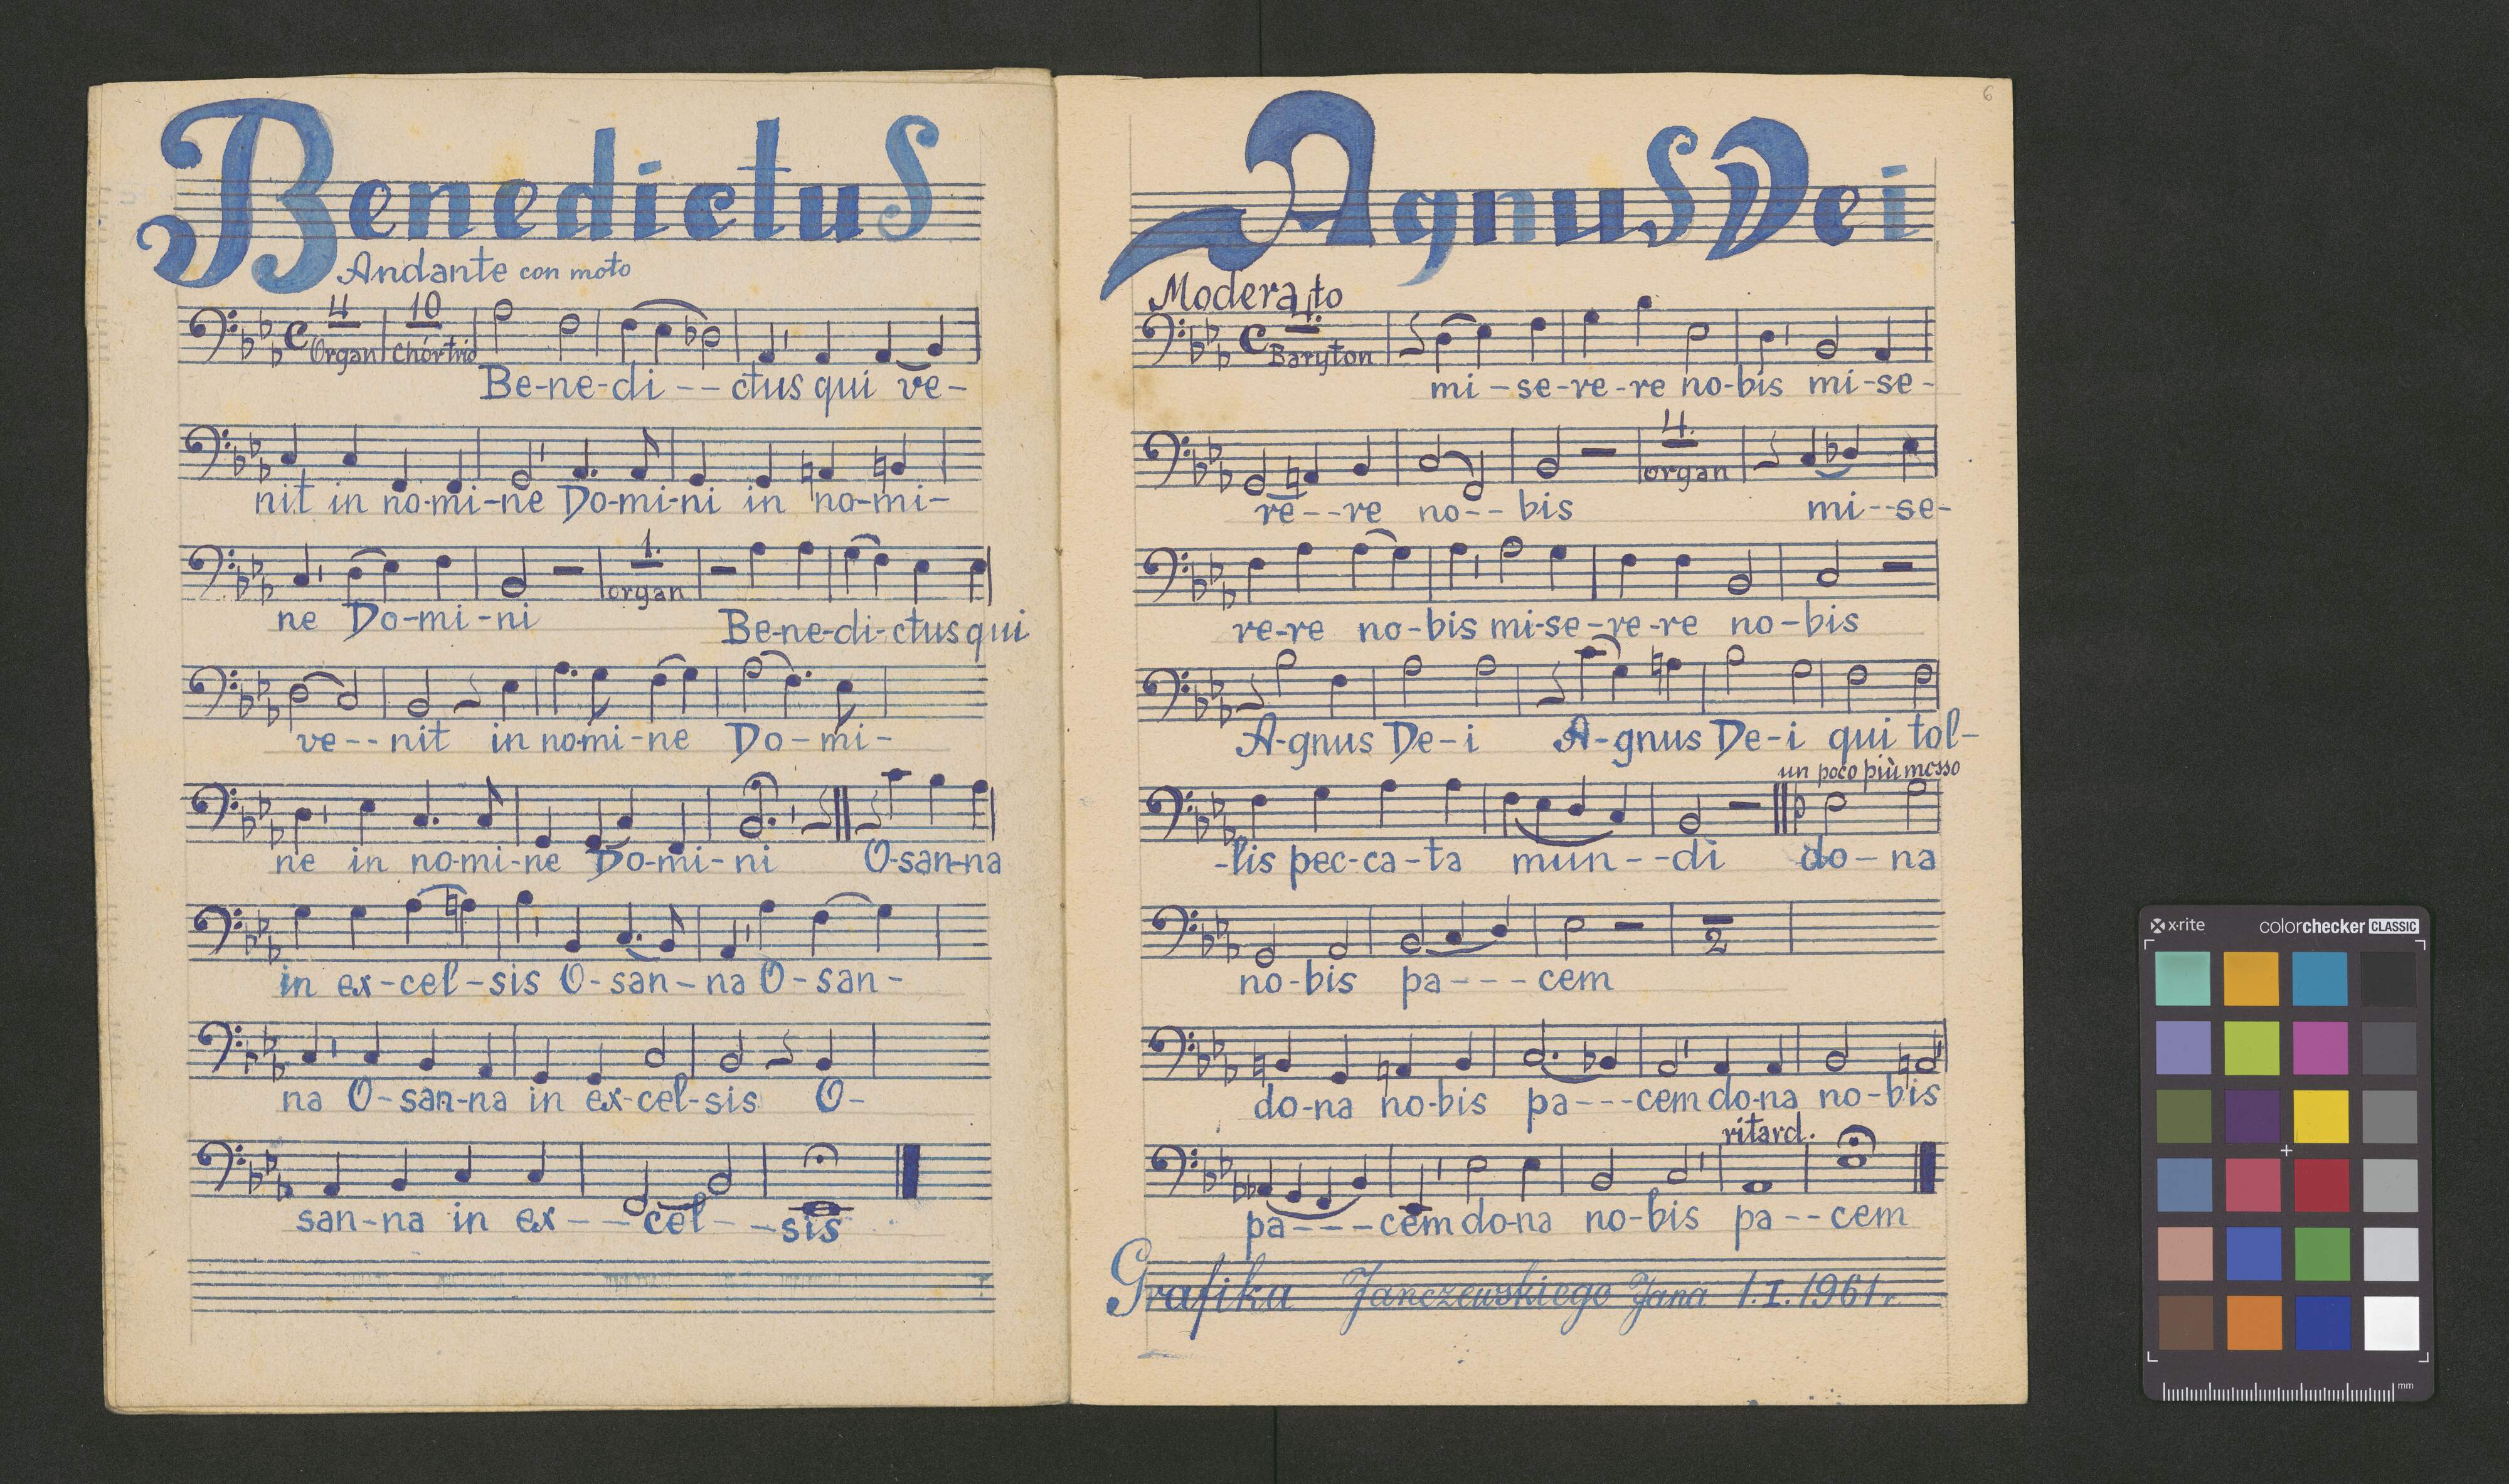 Benedictus
Andante con moto
4 10
Organ Chórtrio
Be-ne-di--ctus qui ve-
nit in no-mi-ne Do-mi-ni in no-mi-
1.
organ
ne Do-mi-ni Be-ne-di-ctus qui
ve--nit in no-mi-ne Do-mi-
ne in no-mi-ne Do-mi-ni O-san-na
in ex-cel-sis O-san-na O-san-
na O-san-na in ex-cel-sis O-
san-na in ex---cel--sis
6
Agnus Dei
Moderato
1.
Baryton
mi-se-re-re no-bis mi-se-
4.
organ
re--re no--bis mi--se-
re-re no-bis mi-se-re-re no-bis
A-gnus De-i A-gnus De-i qui tol-
un poco più mosso
-lis pec-ca-ta mun--di do-na
2
no-bis pa---cem
do-na no-bis pa---cem do-na no-bis
ritard.
pa---cem do-na no-bis pa--cem
Grafika Janczewskiego Jana 1.I.1961r.
x-rite colorchecker CLASSIC
mm